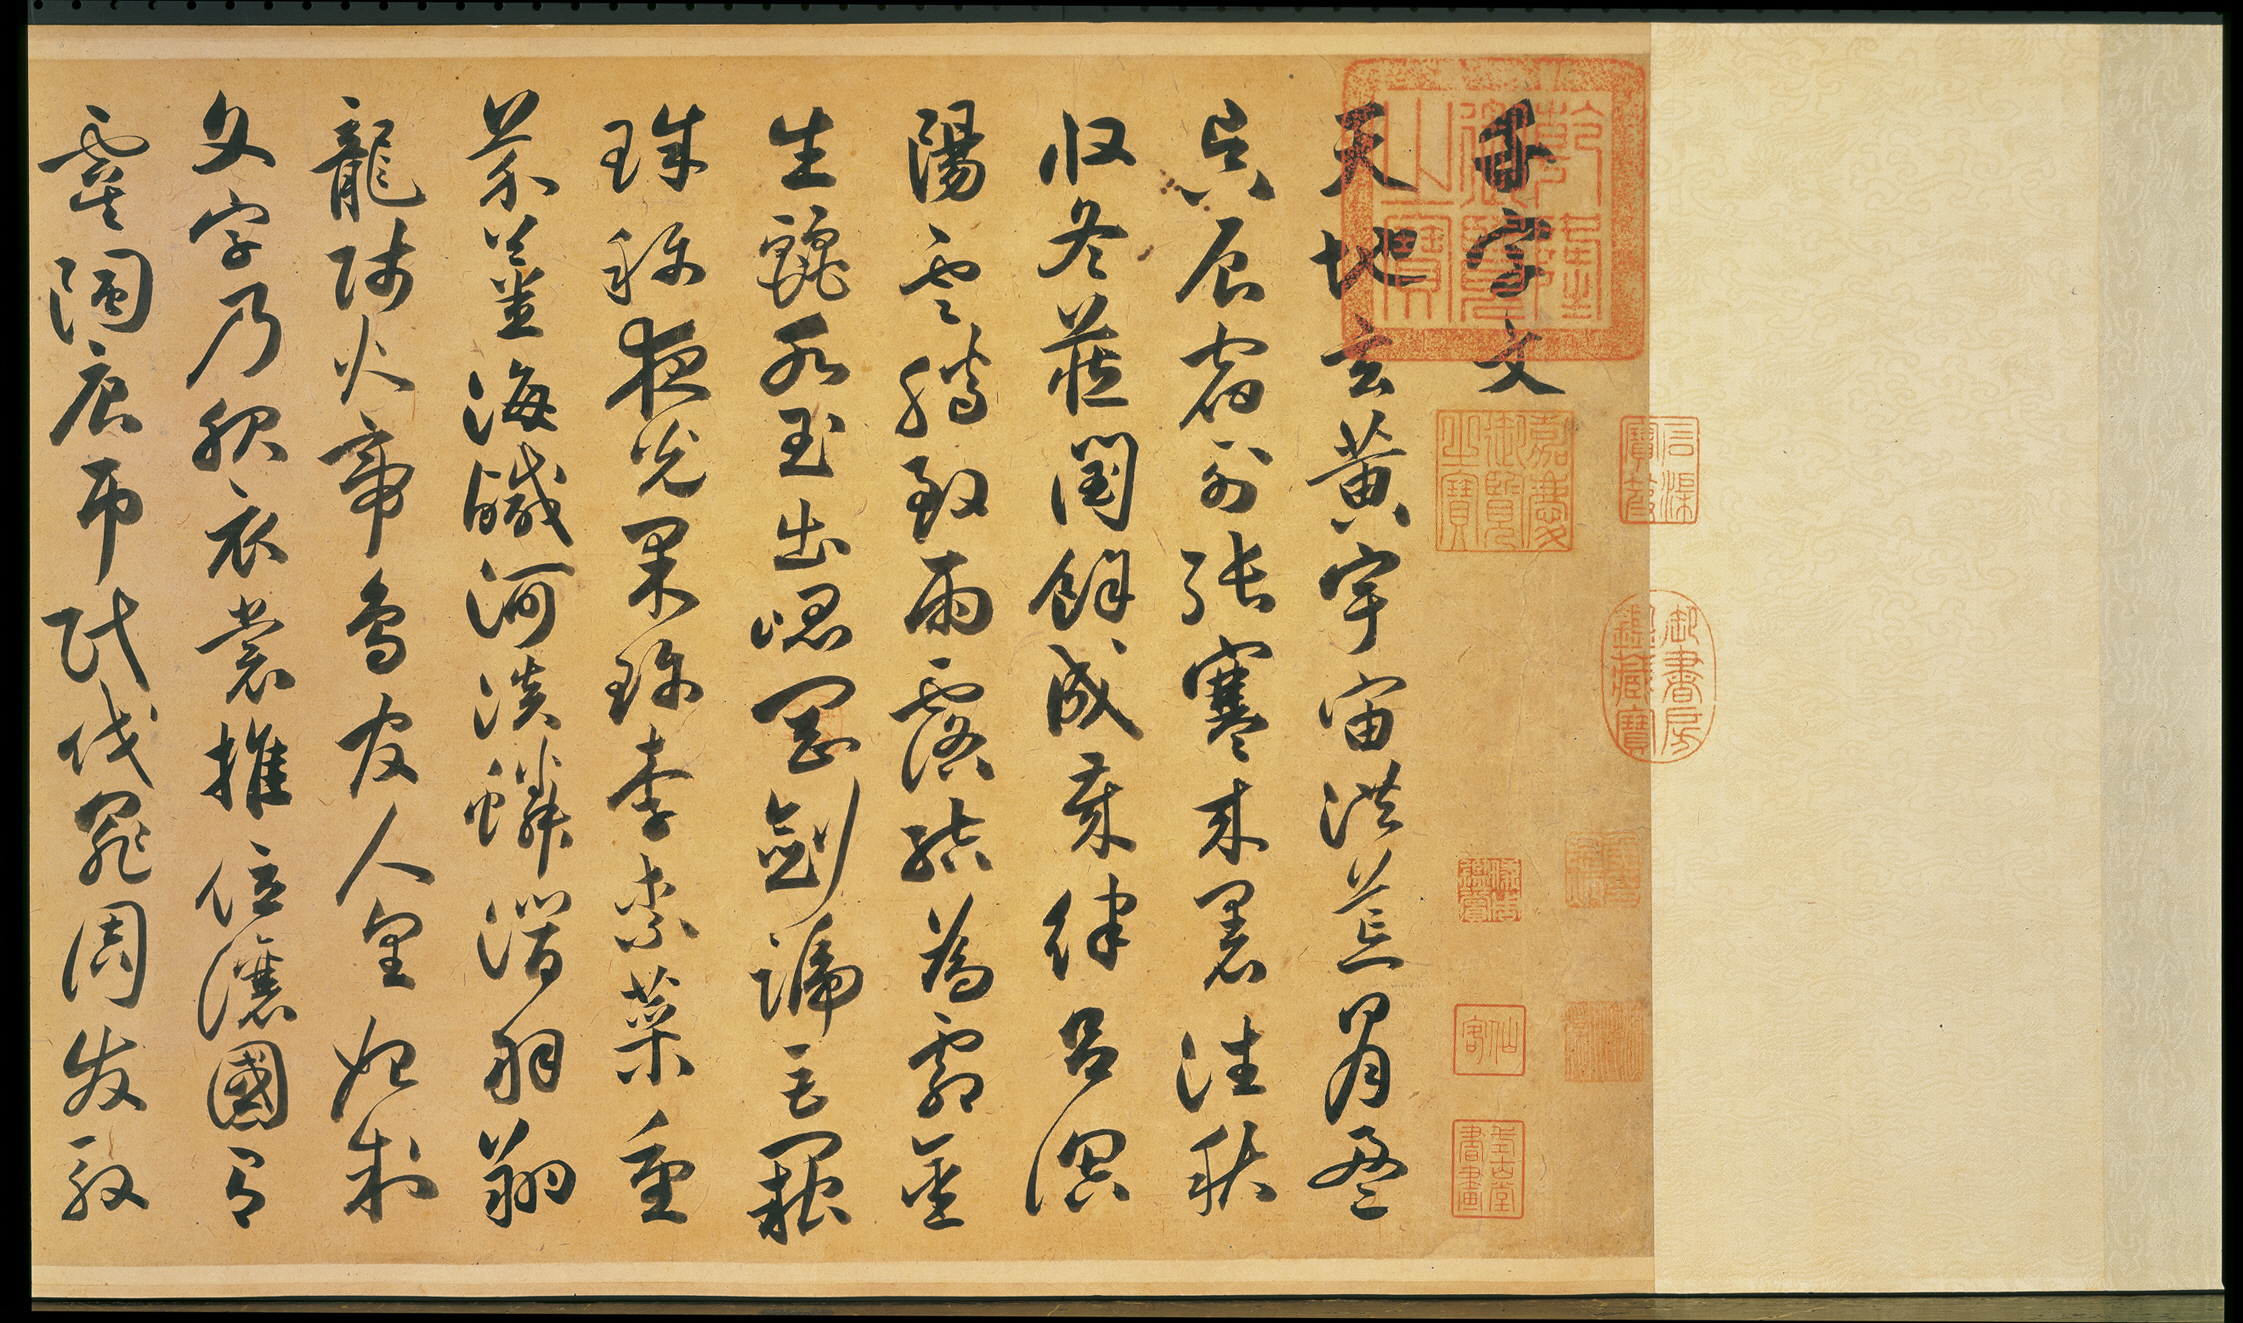 千字文
天地玄黃宇宙洪荒日月盈
昃辰宿列張寒來暑往秋
收冬藏閏餘成歲律呂調
陽雲騰致雨露結為霜金
生麗水玉出崑岡劍號巨闕
珠稱夜光果珍李柰菜重
芥薑海鹹河淡鱗潛羽翔
龍師火帝鳥官人皇始制
文字乃服衣裳推位讓國有
虞陶唐弔民伐罪周發殷
乾隆御覽之寶
嘉慶御覽之寶
石渠寶笈
御書房鑑藏寶
仙客